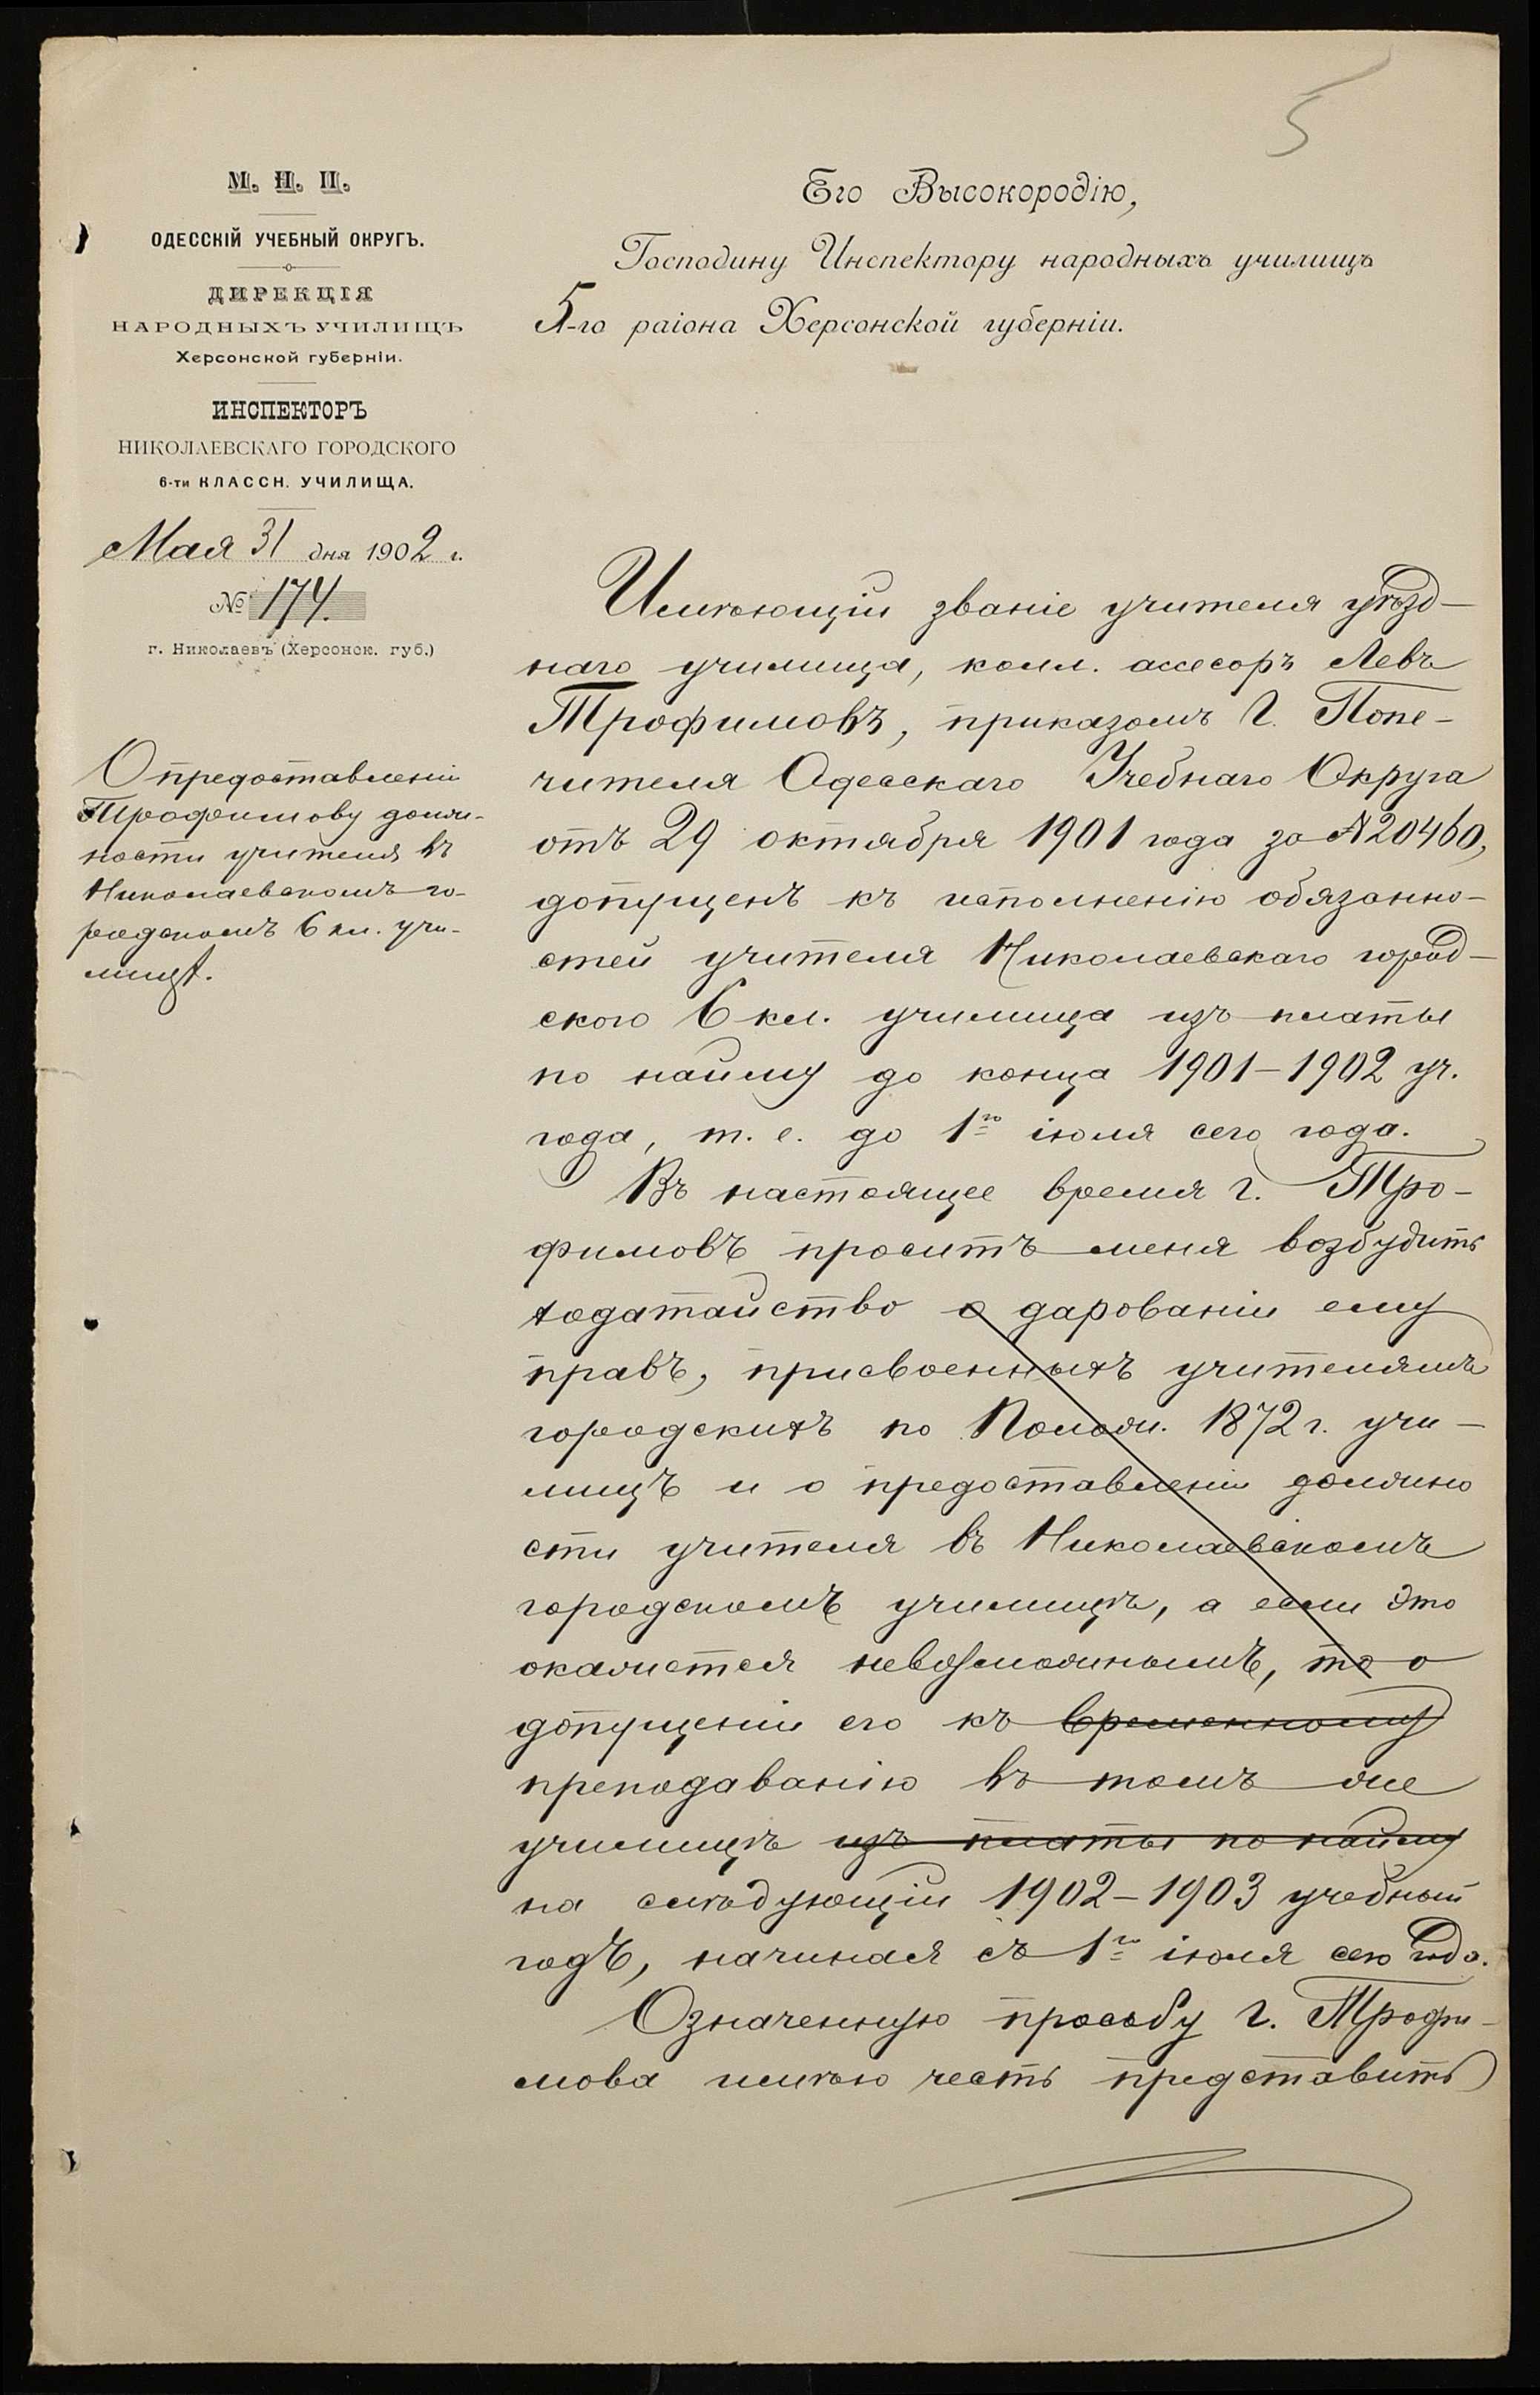 5
М. Н. П.
ОДЕССКІЙ УЧЕБНЫЙ ОКРУГЪ.
ДИРЕКЦІЯ
НАРОДНЫХЪ УЧИЛИЩЪ
Херсонской губерніи.
ИНСПЕКТОРЪ
НИКОЛАЕВСКАГО ГОРОДСКОГО
6-ти КЛАССН. УЧИЛИЩА.
Мая 31 дня 1902 г.
№ 174.
г. Николаевъ (Херсонск. губ.)
О предоставленіи
Трофимову долж-
ности учителя въ
Николаевскомъ го-
родскомъ 6 кл. учи-
лищѣ.
Его Высокородію,
Господину Инспектору народныхъ училищъ
5-го раіона Херсонской губерніи.
Имѣющій званіе учителя уѣзд-
наго училища, колл. ассесоръ Левъ
Трофимовъ, приказомъ Г. Попе-
чителя Одесскаго Учебнаго Округа
отъ 29 октября 1901 года за № 20460,
допущенъ къ исполненію обязанно-
стей учителя Николаевскаго город-
ского 6 кл. училища изъ платы
по найму до конца 1901-1902 уч.
года, т. е. до 1го іюля сего года.
Въ настоящее время г. Тро-
фимовъ проситъ меня возбудить
ходатайство о дарованіи ему
правъ, присвоенныхъ учителямъ
городскихъ по Полож. 1872 г. учи-
лищъ и о предоставленіи должно
сти учителя въ Николаевскомъ
городскомъ училищѣ, а если это
окажется невозможнымъ, то о
допущеніи его къ временному
преподаванію въ томъ же
училищѣ изъ платы по найму
на слѣдующій 1902-1903 учебный
годъ, начиная съ 1го іюля сего года.
Означенную просьбу г. Трофи-
мова имѣю честь представить